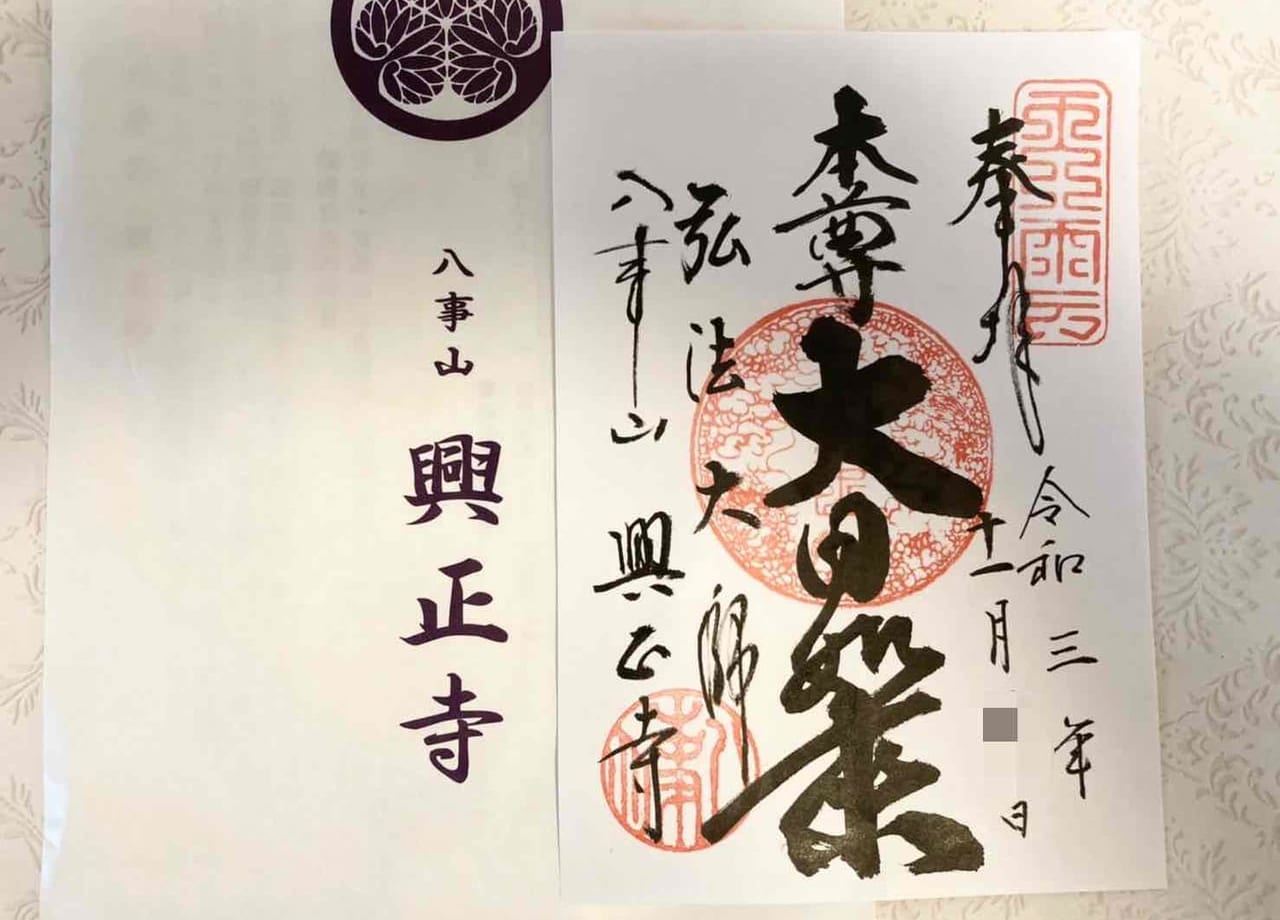 奉拝
令和三年
十一月 日
本尊
大日如来
弘法大師
八事山
興正寺
八事山
興正寺